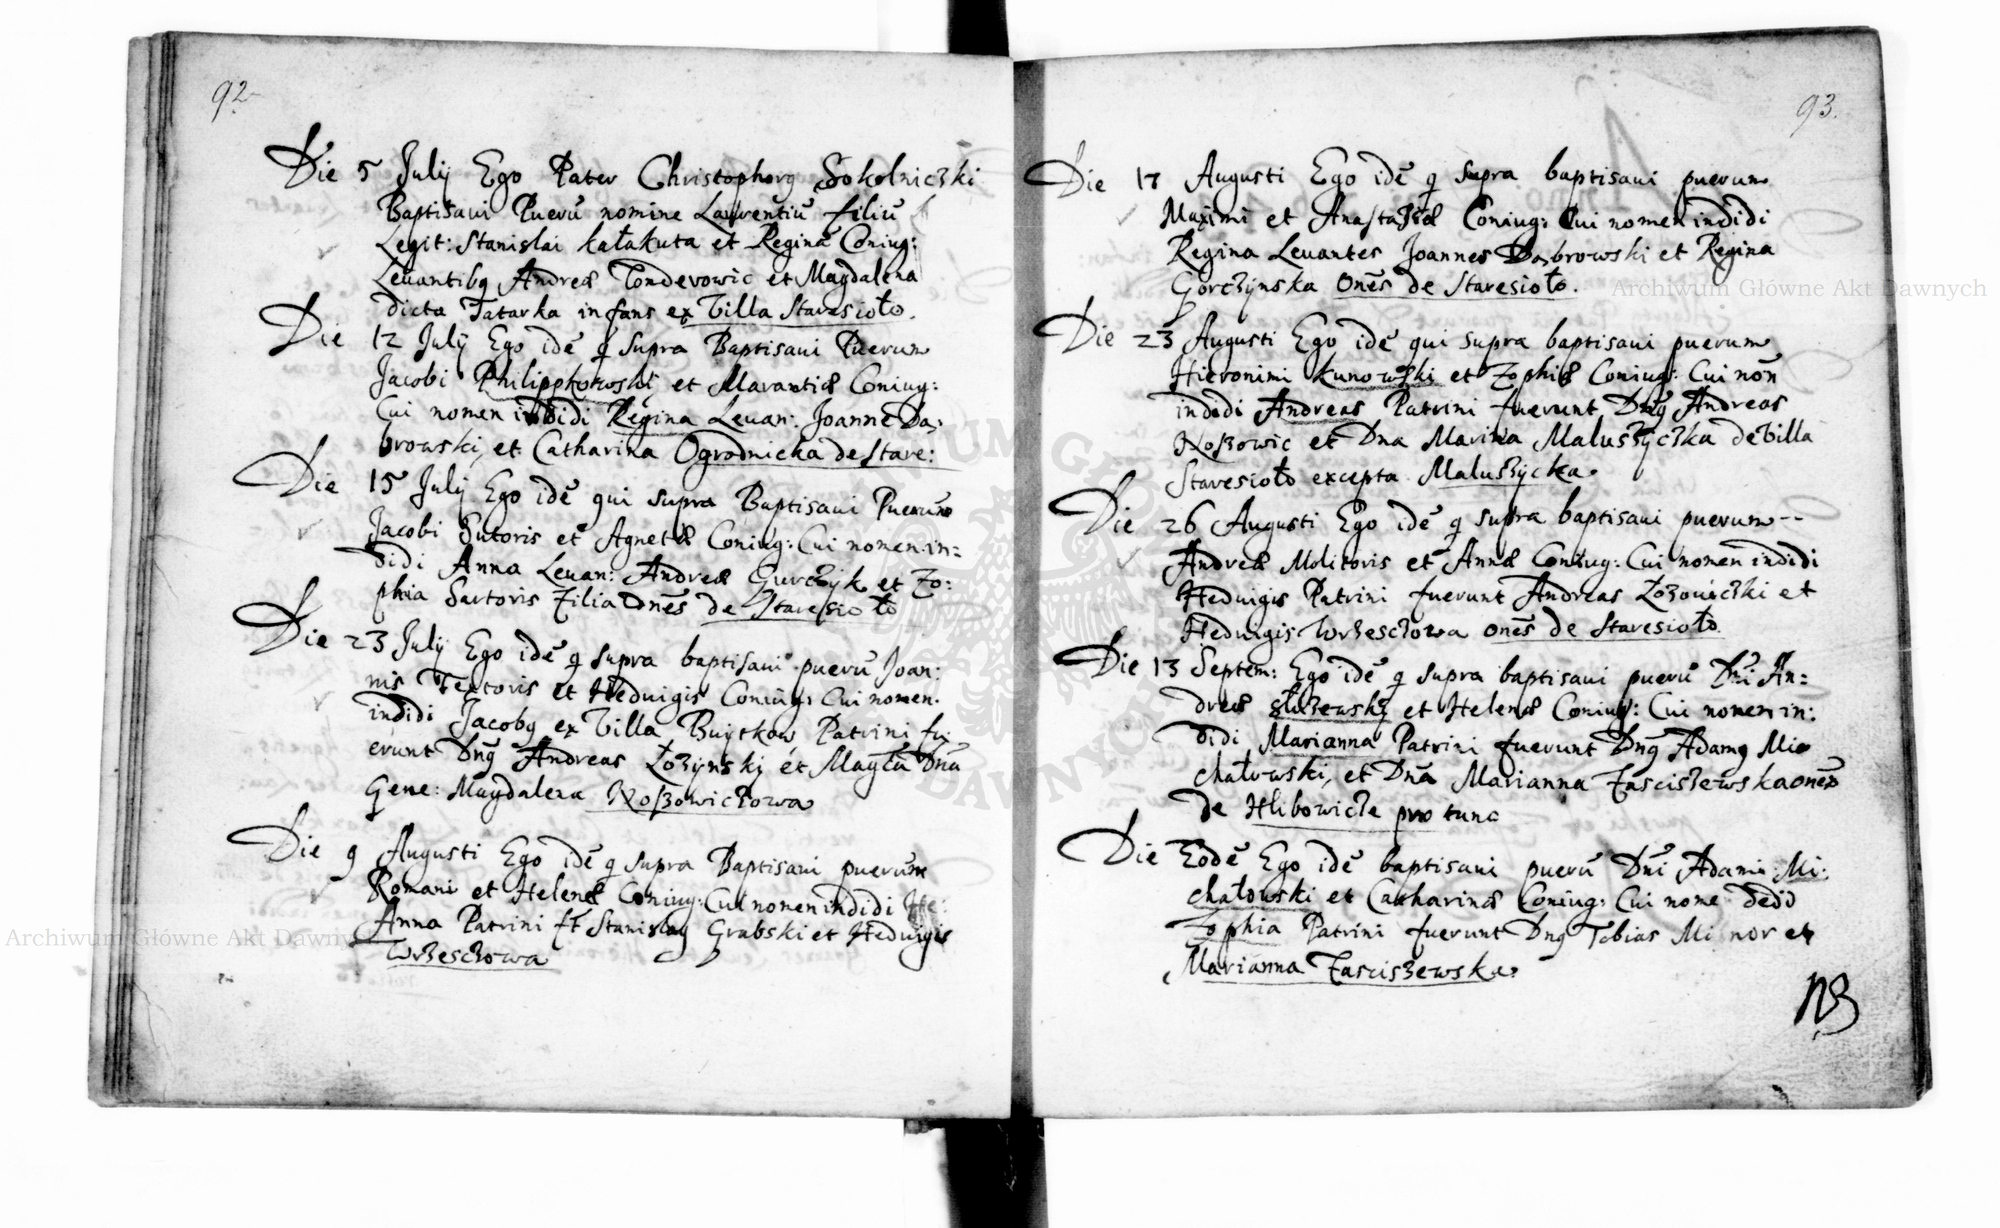 92
Die 5 Julij Ego Pater Christophorq Sokolniczki
Baptisaui Puerū nomine Laurentiū filiū
Legit: Stanislai kałakuta et Reginæ Coniug:
Leuantibq Andreæ Tonderowic et Magdalena
dicta Tatarka infans ex Villa Staresioło.
Die 12 Julij Ego idē q supra Baptisaui Puerum
Jacobi Philippkowski et Marantiæ Coniug:
Cui nomen indidi Regina Leuan: Joanne Da,
browski, et Catharina Ogrodnicka de Stare:
Die 15 Julij Ego idē qui supra Baptisaui Puerum
Jacobi Sutoris et Agnetæ Coniug: Cui nomen in=
didi Anna Leuan: Andreæ Gurczyk et Zo:
phia Sartoris Filia Onēs de Staresioło
Die 23 Julij Ego idē q supra baptisaui puerū Joan:
nis Textoris et Heduigis Coniug: Cui nomen
indidi Jacobq ex Villa Buytkow Patrini fu
erunt Dnq Andreas Łozynski et Magca Dna
Gene: Magdalena Noszowiczowa
Die 9 Augusti Ego idē q supra Baptisaui puerum
Romani et Helenæ Coniug: Cui nomen indidi He:
Anna Patrini ft Stanislaq Grabski et Heduigis
Wrzesczowa
93.
Die 17 Augusti Ego idē q supra baptisaui puerum
Maximi et Anastasiæ Coniug: Cui nomen indidi
Regina Leuantes Joannes Dabrowski et Regina
Gorczynska Onēs de Staresioło.
Die 23 Augusti Ego idē qui supra baptisaui puerum
Hieronimi Kunowski et Zophiæ Coniug: Cui nōn
indidi Andreas Patrini fuerunt Dnq Andreas
Noszowic et Dna Marina Maluszyczka de Villa
Staresioło excepta Maluszycka.
Die 26 Augusti Ego idē q supra baptisaui puerum--
Andreæ Molitoris et Annæ Coniug: Cui nomen indidi
Heduigis Patrini fuerunt Andreas Łozowiczki et
Heduigis Wrzesczowa onēs de Staresioło.
Die 13 Septem: Ego idē q supra baptisaui puerū Dni An=
dreæ służewski et Helenæ Coniug: Cui nomen in:
didi Marianna Patrini fuerunt Dnq Adamq Mi
chałowski, et Dna Marianna Fasciszewska onēs
de Hlibowicze pro tunc
Die Eodē Ego idē baptisaui puerū Dni Adami Mi:
chałowski et Catharinæ Coniug: Cui nome dedi
Zophia Patrini fuerunt Dnq Tobias Minor et
Marianna Fasciszewska.
NB
Archiwum Główne Akt Dawnych
Archiwum Główne Akt Dawnych
ARCHIWUM GŁÓWNE AKT DAWNYCH